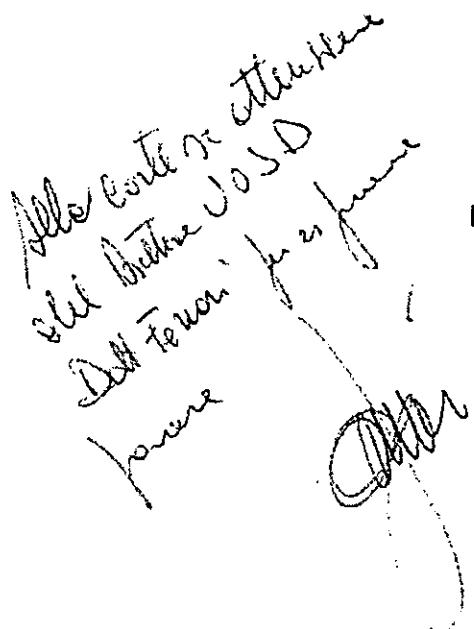 Alla cortese attenzione
del Direttore UOSD
Dott Tenori per es
parere